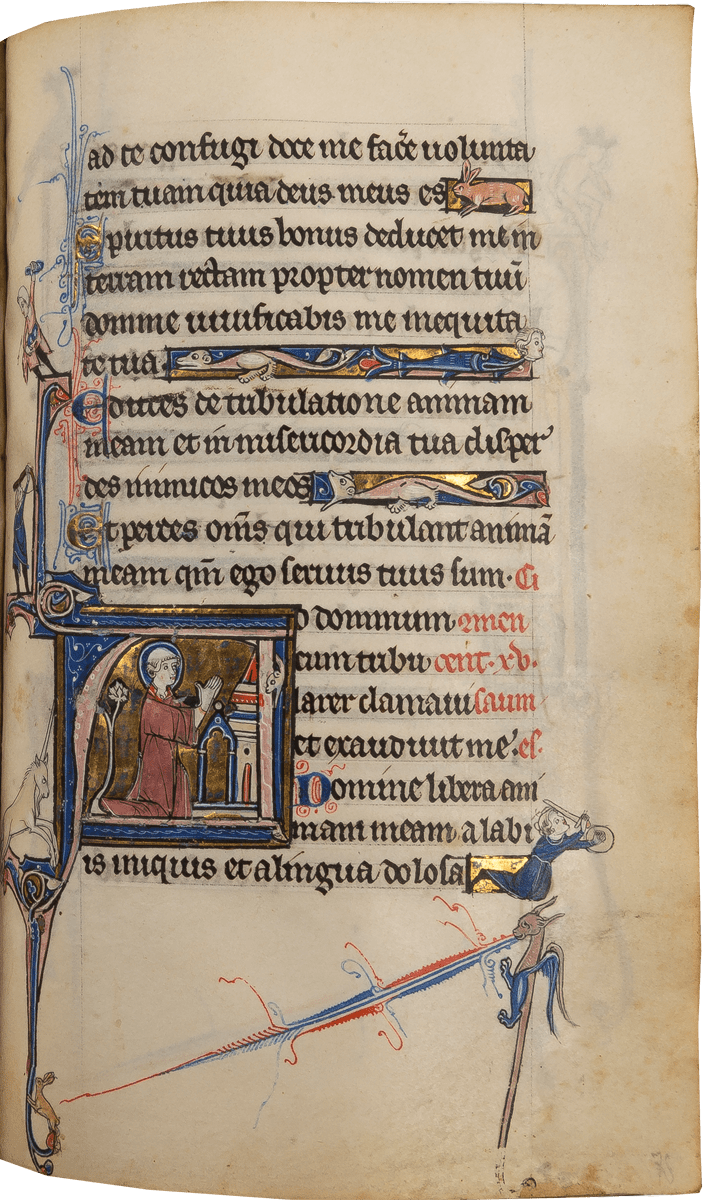 ad te confugi doce me fac̄e uolunta
tem tuam quia deus meus es
Spiritus tuus bonus deducet me in
terram rectam propter nomen tuū
domine uiuificabis me in equita
te tua.
Educes de tribulatione animam
meam et in misericordia tua disper
des inimicos meos
Et perdes om̄s qui tribulant animā
meam qm̄ ego seruus tuus sum. Ci
Ad dominum amen
cum tribu cent. xv.
larer clamaui saum
et exaudiuit me. es.
Domine libera ani
mam meam a labi
is iniquis et a lingua dolosa